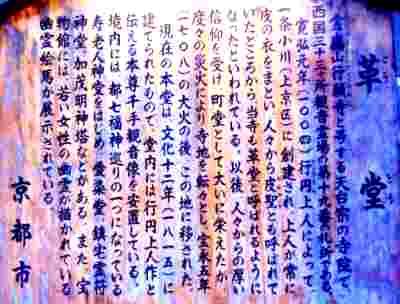 革堂
こうどう
霊麀山行願寺と号する天台宗の寺院で、
西国三十三所観音霊場の第十九番札所である。
寛弘元年(一〇〇四)行円上人によって、
一条小川(上京区)に創建され、上人が常に
皮の衣をまとい人々から皮聖とも呼ばれて
いたところから当寺も革堂と呼ばれるように
なったといわれている。以後、人々からの厚い
信仰を受け町堂として大いに栄えたが、
度々の災火により寺地を転々とし、宝永五年
(一七〇八)の大火の後、この地に移された。
現在の本堂は文化十二年(一八一五)に
建てられたもので、堂内には行円上人作と
伝える本尊千手観音像を安置している。
境内には都七福神巡りの一つになっている
寿老人神堂をはじめ、愛染堂、鎮宅霊符
神堂、加茂明神塔などがある。また、宝
物館には若い女性の幽霊が描かれている
幽霊絵馬が展示されている。
京都市